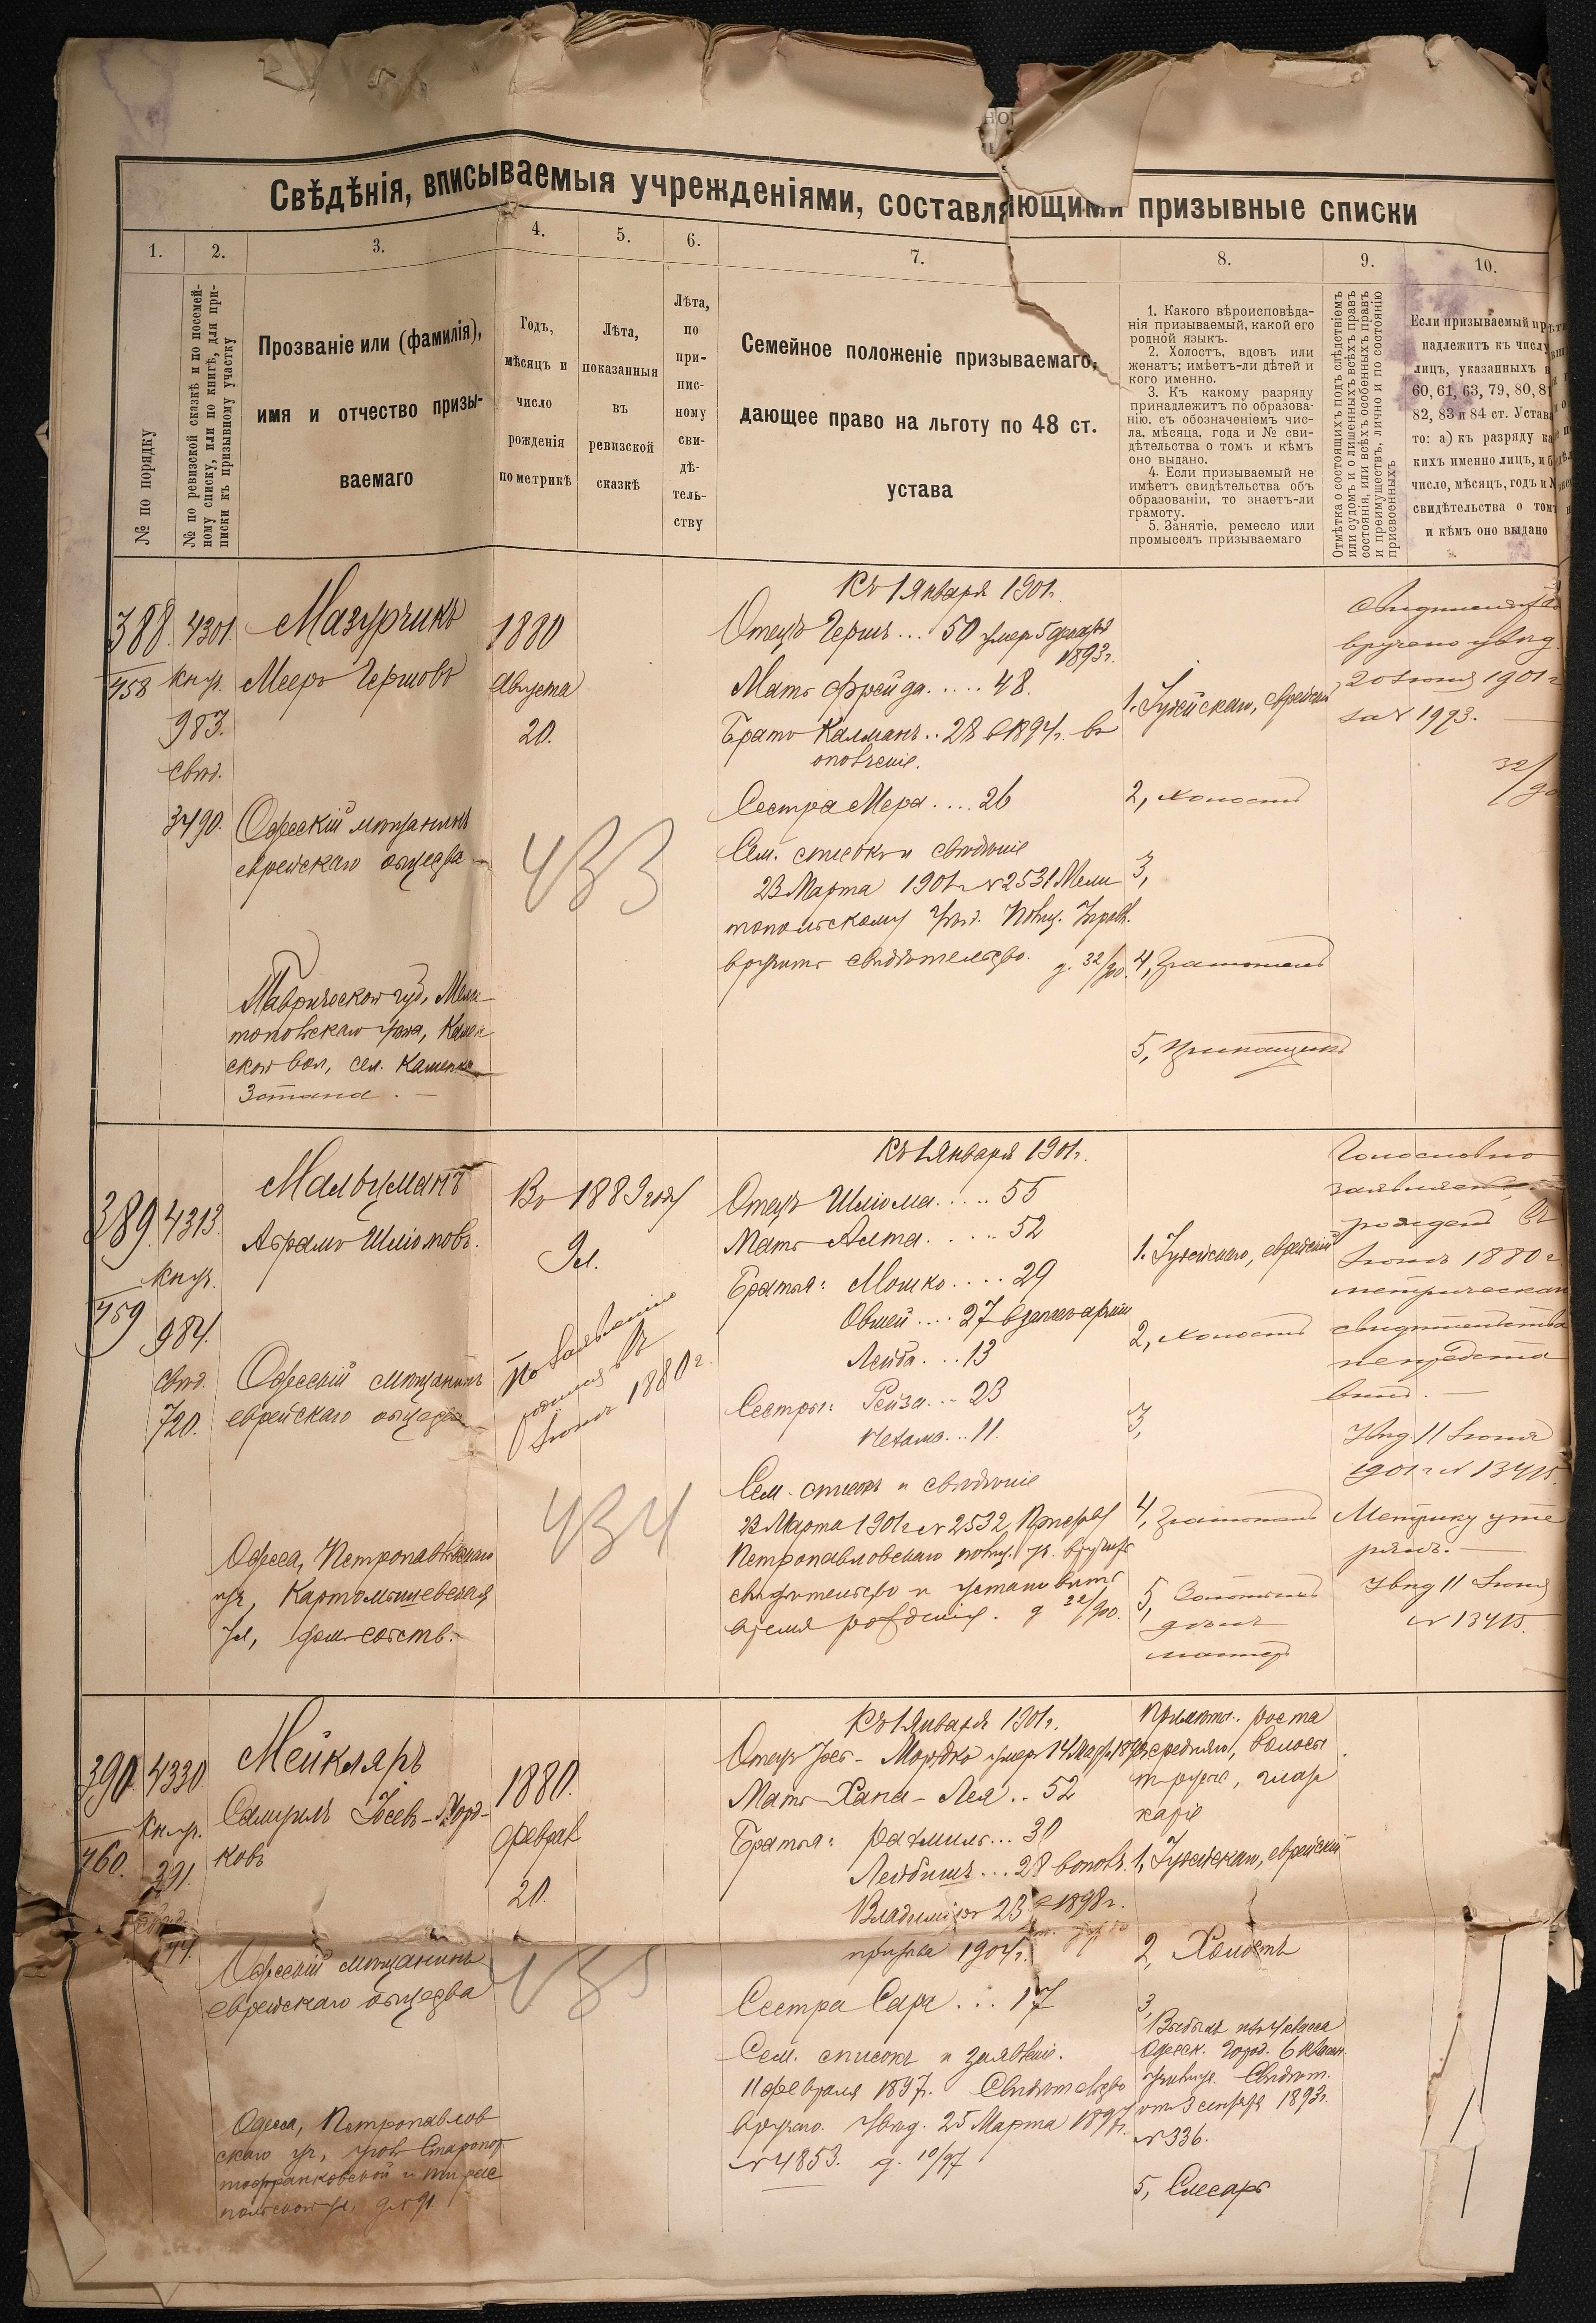 Свѣдѣнія, вписываемыя учрежденіями, составляющими призывные списки
1.
2.
3.
4.
5.
6.
7.
8.
9.
10.
№ по порядку
№ по ревизской сказкѣ и по посемей-
ному списку, или по книгѣ, для при-
писки къ призывному участку
Прозваніе или (фамилія),
имя и отчество призы-
ваемаго
Годъ,
мѣсяцъ и
число
рожденія
по метрикѣ
Лѣта,
показанныя
въ
ревизской
сказкѣ
Лѣта,
по
при-
пис-
ному
сви-
дѣ-
тель-
ству
Семейное положеніе призываемаго,
дающее право на льготу по 48 ст.
устава
1. Какого вѣроисповѣда-
нія призываемый, какой его
родной языкъ.
2. Холостъ, вдовъ или
женатъ; имѣетъ-ли дѣтей и
кого именно.
3. Къ какому разряду
принадлежитъ по образова-
нію, съ обозначеніемъ чис-
ла, мѣсяца, года и № сви-
дѣтельства о томъ и кѣмъ
оно выдано.
4. Если призываемый не
имѣетъ свидѣтельства объ
образованіи, то знаетъ-ли
грамоту.
5. Занятіе, ремесло или
промыселъ призываемаго
Отмѣтка о состоящихъ подъ слѣдствіемъ
или судомъ и о лишенныхъ всѣхъ правъ
состоянія, или всѣхъ особенныхъ правъ
и преимуществъ, лично и по состоянію
присвоенныхъ
Если призываемый пр
надлежитъ къ числу
лицъ, указанныхъ в
60, 61, 63, 79, 80, 81
82, 83 и 84 ст. Устава
то: а) къ разряду ка
кихъ именно лицъ, и б
число, мѣсяцъ, годъ и №
свидѣтельства о томъ
и кѣмъ оно выдано
388
458
4301
книг.
983.
свид.
3490.
Мазурчикъ
Мееръ Гершовъ
Одесскій мѣщанинъ
еврейскаго общества
Таврической губ., Мели-
топольскаго уѣзда, Камен-
ской вол., сел. Каменка
1880
Августа
20.
433
Къ 1 Января 1901 г.
Отецъ Гершъ... 50 умеръ 5
1893 г.
Мать Фрейда..... 48.
Братъ Калманъ.. 28 въ 1894 г. въ
ополченіе.
Сестра Мера.... 26
Сем. списокъ и свѣдѣніе
23 Марта 1901 г. № 2531 Мели-
топольскому Уѣзд. Полиц. Управл.
вручить свидѣтельство. д. 32/900.
1. Іудейскаго, еврейскій
2, холостъ
3,
4, Грамотенъ
5, Прикащикъ
Свидѣтельство
вручено увѣд.
20 Іюня 1901 г
за № 1993.
32/90
389
459
4313
книг.
984.
свид.
720.
Мальцманъ
Абрамъ Шліомовъ.
Одесскій мѣщанинъ
еврейскаго общества
Одесса, Петропавловскаго
уч., Картамышевская
ул., дом. собств.
Въ 1889 году
9 л.
По заявленію
родился въ
Іюнѣ 1880 г.
434
Къ 1 Января 1901 г.
Отецъ Шліома..... 55
Мать Алта..... 52
Братья: Мошко..... 29
Овшей.... 27
Лейба.... 13
Сестры: Рейза... 23
Нехама... 11.
Сем. списокъ и свѣдѣніе
23 Марта 1901 г. № 2532 Приставу
Петропавловскаго полиц. уч. вручить
свидѣтельство и установить
время рожденія. д 22/900.
1. Іудейскаго, еврейскій
2, холостъ
3,
4, Грамотенъ
5,
Голословно
заявляетъ,
рожденъ въ
Іюнѣ 1880 г
метрическаго
свидѣтельства
непредста
вилъ.
Увѣд. 11 Іюня
1901 г № 13415.
Метрику уте
рялъ.
Увѣд 11 Іюня
№ 13415.
390
460.
4330
книг.
391.
Мейкляръ
Самуилъ Іосев-Морд-
ковъ
Одесскій мѣщанинъ
еврейскаго общества
Одесса, Петропавлов
скаго уч., уголъ Старопор
тофранковской и Тирас
польской ул. д № 91.
1880.
Феврал
20.
435
Къ 1 Января 1901 г.
Отецъ Іосъ-Мордко умеръ 14 Марта
Мать Хана-Лея.. 52
Братья: Рахмиль... 30
Лейбишъ... 28 въ ополч.
Владиміръ 23 1898 г.
призыва 1904 г.
Сестра Сара... 17
Сем. списокъ и заявленіе.
11 февраля 1897 г. Свидѣтельство
вручено. Увѣд. 25 Марта 1897 г.
№ 4853. д. 10/97
Примѣты: роста
средняго, волосы
русые, глаза
каріе
1, Іудейскаго, еврейскій
2, Холостъ
3,
Выбылъ изъ 4 класса
Одесск. Город. 6 класн.
училища. Свидѣт.
отъ 3 сентября 1893 г.
№ 336.
5, Слесарь